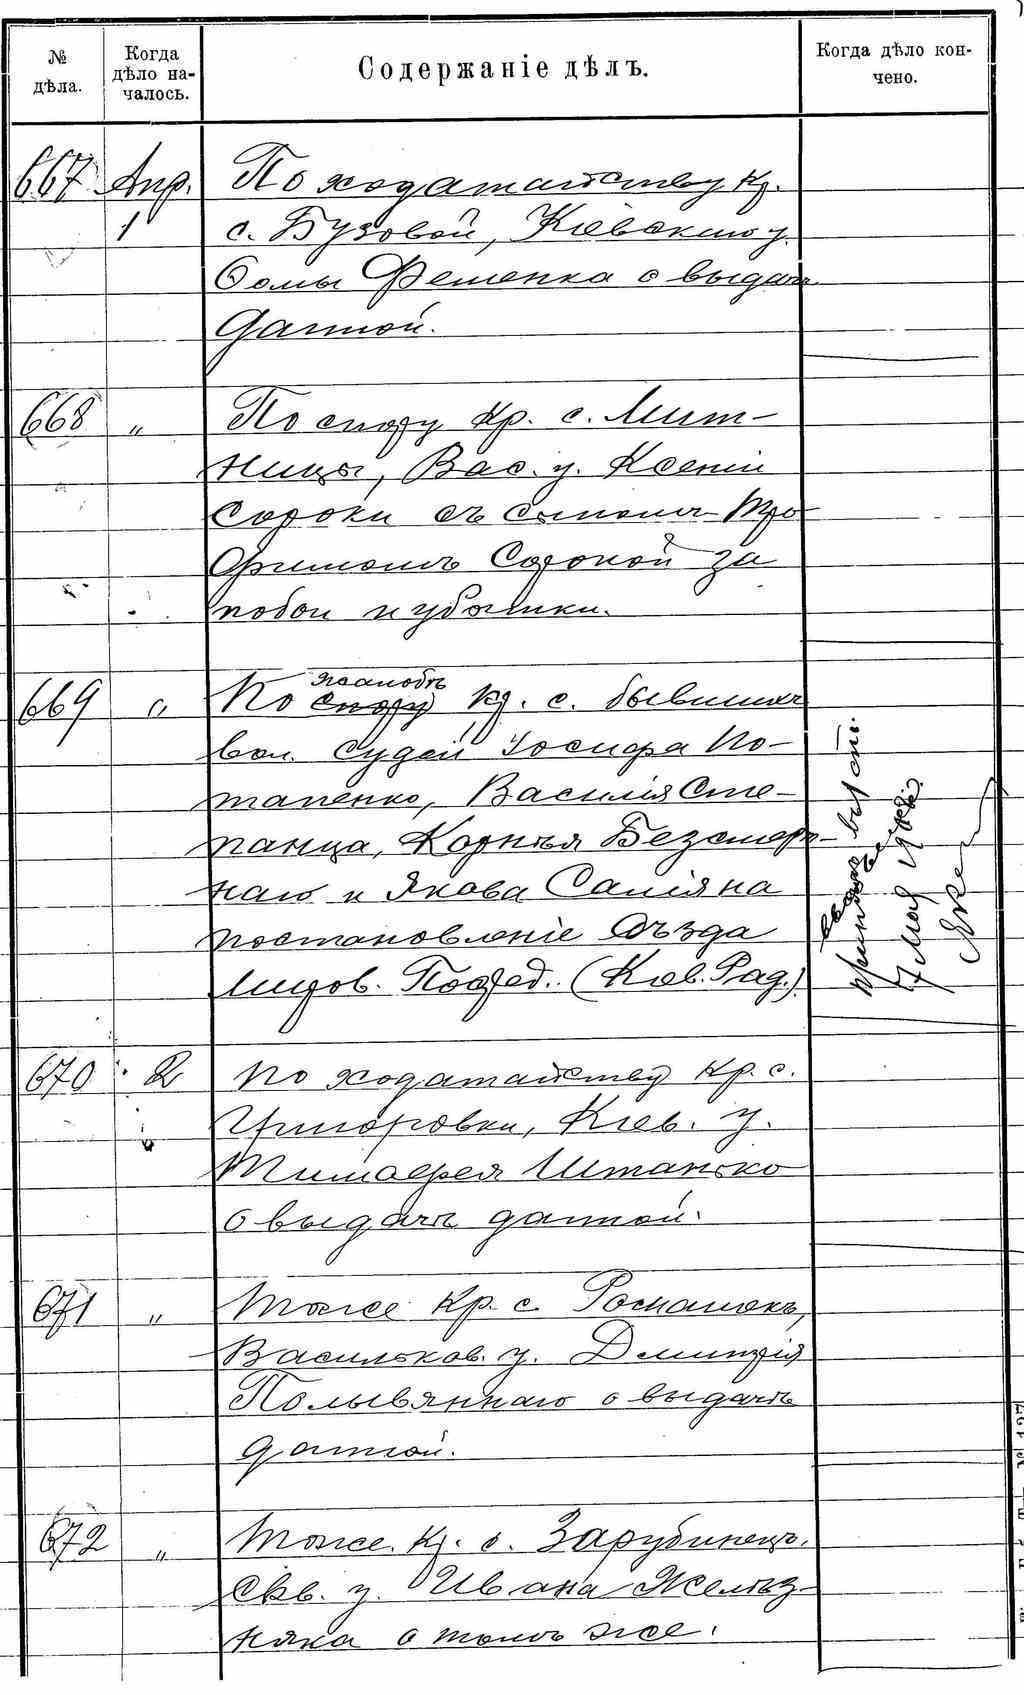 № дѣла.
Когда дѣло на-
чалось.
Содержаніе дѣлъ.
Когда дѣло кон-
чено.
667 Апр. По ходатайству кр.
1 с. Бузовой, Кіевскаго у.
Ѳомы Феменка о выдачѣ
данной.
668 „ По спору кр. с. Мит-
ницы, Вас. у. Ксеніи
Сороки съ сыномъ Тро-
фимомъ Сорокой за
побои и убытки.
669 „ По жалобѣ спору кр. с. бывшихъ
вол. судей Іосифа По-
тапенко, Василія Сте-
панца, Корнѣя Безсмерт-
наго и Якова Салія на
постановленіе Съѣзда
Миров. Посред. (Ков. Рад.)
7 мая
670 2 По ходатайству кр. с.
Григоровки, Кіев. у.
Тимофея Штанько
о выдачѣ данной.
671 „ Тоже кр. с. Романокъ,
Васильков. у. Дмитрія
Поливяннаго о выдачѣ
данной.
672 „ Тоже кр. с. Зарубинецъ,
Скв. у. Ивана Желѣз-
няка о томъ же.